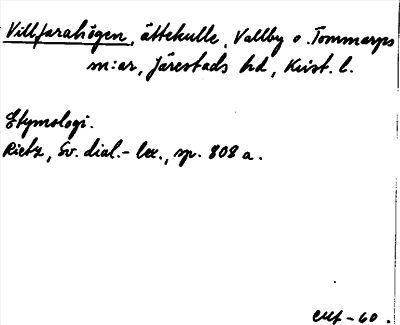 Villfarahögen, ättekulle, Vallby o. Tommarps
m:ar, Järestads hd, Krist. l.
Etymologi.
Rietz, Sv. dial.-lex., sp. 808 a.
-60.